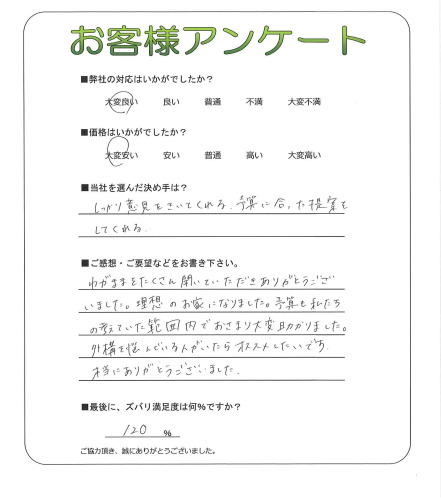 お客様アンケート
■弊社の対応はいかがでしたか？
大変良い　良い　普通　不満　大変不満
■価格はいかがでしたか？
大変安い　安い　普通　高い　大変高い
■当社を選んだ決め手は？
しっかり意見をきいてくれる。予算に合った提案を
してくれる。
■ご感想・ご要望などをお書き下さい。
わがままをたくさん聞いていただきありがとうござ
いました。理想のお家になりました。予算も私たち
の考えていた範囲内でおさまり大変助かりました。
外構を悩んでいる人がいたらオススメしたいです。
本当にありがとうございました。
■最後に、ズバリ満足度は何%ですか？
120 %
ご協力頂き、誠にありがとうございました。